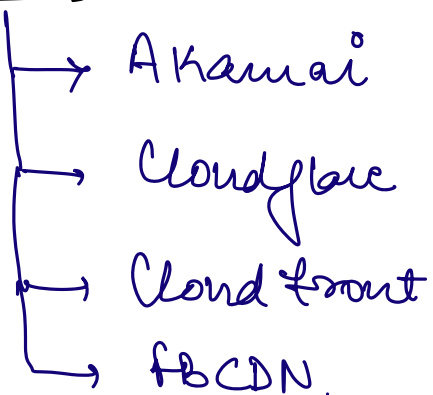 Akamai
Cloudflare
Cloud front
fBCDN.